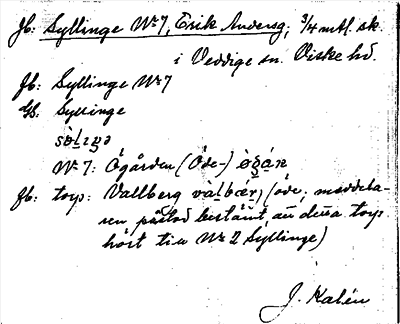 Jb: Syllinge Nr 7, Erik Andersg, 3/4 mtl. sk.
i Veddige sn. Viske hd.
Jb: Syllinge Nr 7
GS: Syllinge
Nr 7: Ögården (Öde-)
Jb: torp: Vallberg (öde; meddela-
ren påstod bestämt, att detta torp
hört till Nr 2 Syllinge)
J. Kalén